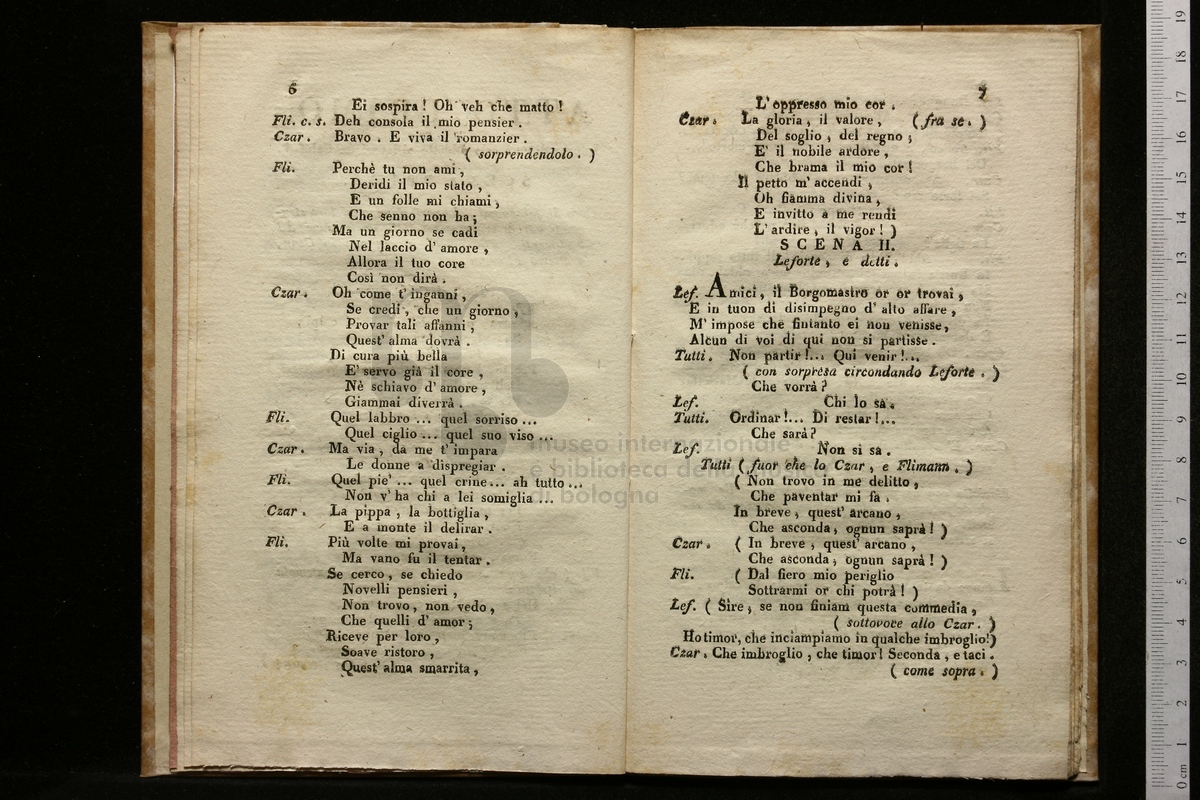 6
Ei sospira ! Oh veh che matto !
Fli. c. s. Deh consola il mio pensier .
Czar . Bravo . E viva il romanzier .
( sorprendendolo . )
Fli. Perchè tu non ami ,
Deridi il mio stato ,
E un folle mi chiami ,
Che senno non ha ;
Ma un giorno se cadi
Nel laccio d' amore ,
Allora il tuo core
Così non dirà .
Czar . Oh come t' inganni ,
Se credi , che un giorno ,
Provar tali affanni ,
Quest' alma dovrà .
Di cura più bella
E' servo già il core ,
Nè schiavo d' amore ,
Giammai diverrà .
Fli. Quel labbro ... quel sorriso ...
Quel ciglio ... quel suo viso ...
Czar . Ma via , da me t' impara
Le donne a dispregiar .
Fli. Quel pie' ... quel crine ... ah tutto ...
Non v' ha chi a lei somiglia ...
Czar . La pippa , la bottiglia ,
E a monte il delirar .
Fli. Più volte mi provai ,
Ma vano fu il tentar .
Se cerco , se chiedo
Novelli pensieri ,
Non trovo , non vedo ,
Che quelli d' amor ;
Riceve per loro ,
Soave ristoro ,
Quest' alma smarrita ,
7
L' oppresso mio cor .
Czar . La gloria , il valore , ( fra se . )
Del soglio , del regno ;
E' il nobile ardore ,
Che brama il mio cor !
Il petto m' accendi ,
Oh fiamma divina ,
E invitto a me rendi
L' ardire , il vigor ! )
SCENA II.
Leforte , e detti .
Lef. Amici , il Borgomastro or or trovai ,
E in tuon di disimpegno d' alto affare ,
M' impose che fintanto ei non venisse ,
Alcun di voi di qui non si partisse .
Tutti . Non partir !... Qui venir !...
( con sorpresa circondando Leforte . )
Che vorrà ?
Lef. Chi lo sa .
Tutti. Ordinar !... Di restar !...
Che sarà ?
Lef. Non si sa .
Tutti ( fuor che lo Czar , e Flimann . )
( Non trovo in me delitto ,
Che paventar mi fa .
In breve , quest' arcano ,
Che asconda , ognun saprà ! )
Czar . ( In breve , quest' arcano ,
Che asconda , ognun saprà ! )
Fli. ( Dal fiero mio periglio
Sottrarmi or chi potrà ! )
Lef. ( Sire , se non finiam questa commedia ,
( sottovoce allo Czar . )
Ho timor , che inciampiamo in qualche imbroglio ! )
Czar . Che imbroglio , che timor ! Seconda , e taci .
( come sopra . )
museo internazionale
e biblioteca della musica
di bologna
0 cm 1 2 3 4 5 6 7 8 9 10 11 12 13 14 15 16 17 18 19